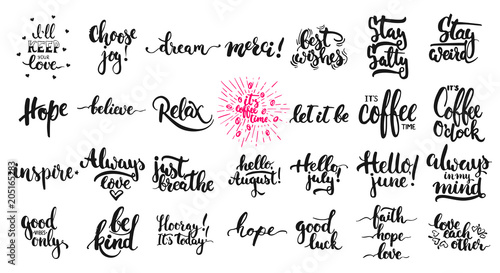 I'll
KEEP
YOUR
Love
Choose
joy!
dream
merci!
best
wishes
Stay
Salty
Stay
weird
Hope
believe
Relax
it's
coffee
time
let it be
IT'S
COFFEE
TIME
IT'S
Coffee
O'clock
inspire
Always
love
just
breathe
hello,
August!
Hello,
july!
Hello!
june!
always
in my
mind
good
VIBES
only
be
kind
Hooray!
It's today!
hope
good
luck
faith
hope
love
love
each
other
205165283